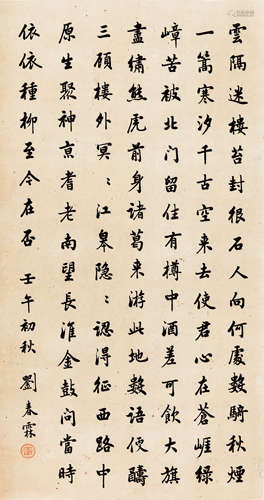 雲隔迷樓苔封很石人向何處數騎秋煙
一篙寒汐千古空来去使君心在蒼崖綠
嶂苦被北门留住有樽中酒差可飲大旗
盡繡熊虎前身諸葛来游此地數語便醻
三顧樓外冥〻江皋隐〻認得征西路中
原生聚神京耆老南望長淮金鼓問當時
依依種柳至今在否 壬午初秋 劉春霖